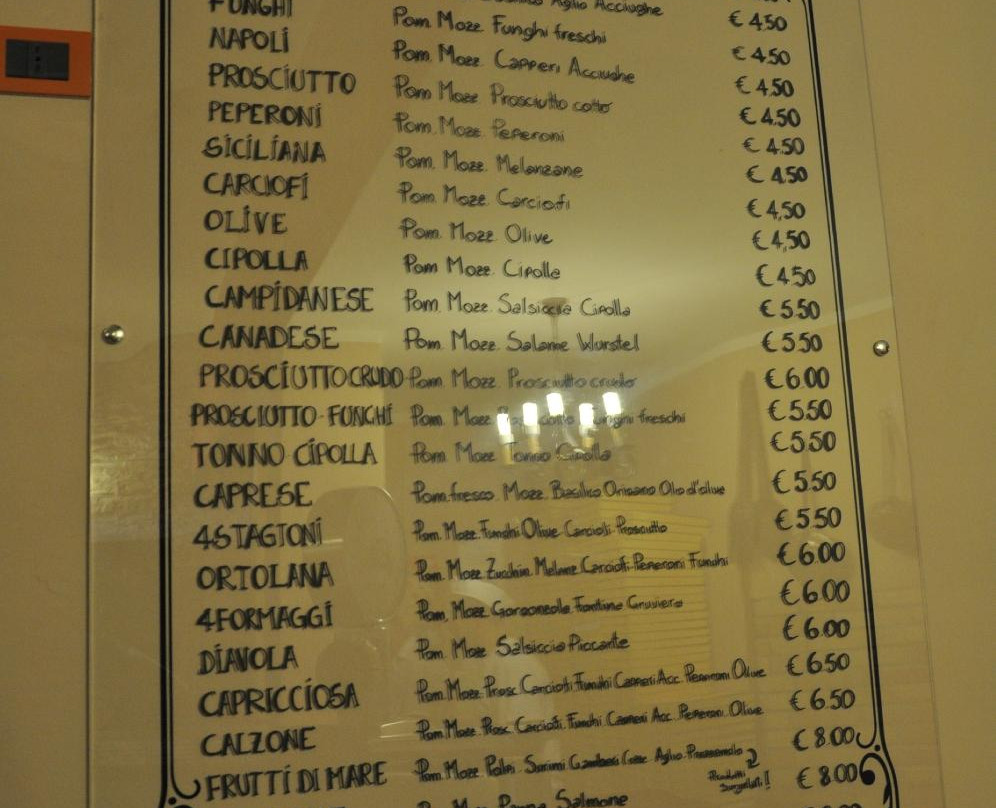 Aglio Acciughe € 4.50
FUNGHI Pom. Mozz. Funghi freschi € 4.50
NAPOLI Pom. Mozz. Capperi Acciughe € 4.50
PROSCIUTTO Pom. Mozz. Prosciutto cotto € 4.50
PEPERONI Pom. Mozz. Peperoni € 4.50
SICILIANA Pom. Mozz. Melanzane € 4.50
CARCIOFI Pom. Mozz. Carciofi € 4,50
OLIVE Pom. Mozz. Olive € 4,50
CIPOLLA Pom Mozz. Cipolla € 4.50
CAMPIDANESE Pom. Mozz. Salsiccia Cipolla € 5.50
CANADESE Pom. Mozz. Salame Wurstel € 5.50
PROSCIUTTO CRUDO Pom. Mozz. Prosciutto crudo € 6.00
PROSCIUTTO-FUNGHI Pom. Mozz. Funghi freschi € 5.50
TONNO CIPOLLA Pom Mozz Tonno Cipolla € 5.50
CAPRESE Pom.fresco Mozz. Basilico Origano Olio d'olive € 5.50
4STAGIONI Pom. Mozz. Funghi Olive Carciofi Prosciutto € 5.50
ORTOLANA Pom. Mozz. Zucchin. Melanz. Carciofi Peperoni Funghi € 6.00
4FORMAGGI Pom. Mozz. Gorgonzola Fontina Gruviera € 6.00
DIAVOLA Pom. Mozz Salsiccia Piccante € 6.00
CAPRICCIOSA Pom. Mozz. Prosc. Carciofi Funghi Capperi Acc. Peperoni Olive € 6.50
CALZONE Pom. Mozz. Prosc. Carciofi Funghi Capperi Acc. Peperoni Olive € 6.50
FRUTTI DI MARE Pom. Mozz. Polpi Surimi Gamberi Cozze Aglio Prezzemolo € 8.00
Prodotti Surgelati!
Pom Mozz Panna Salmone € 8.00